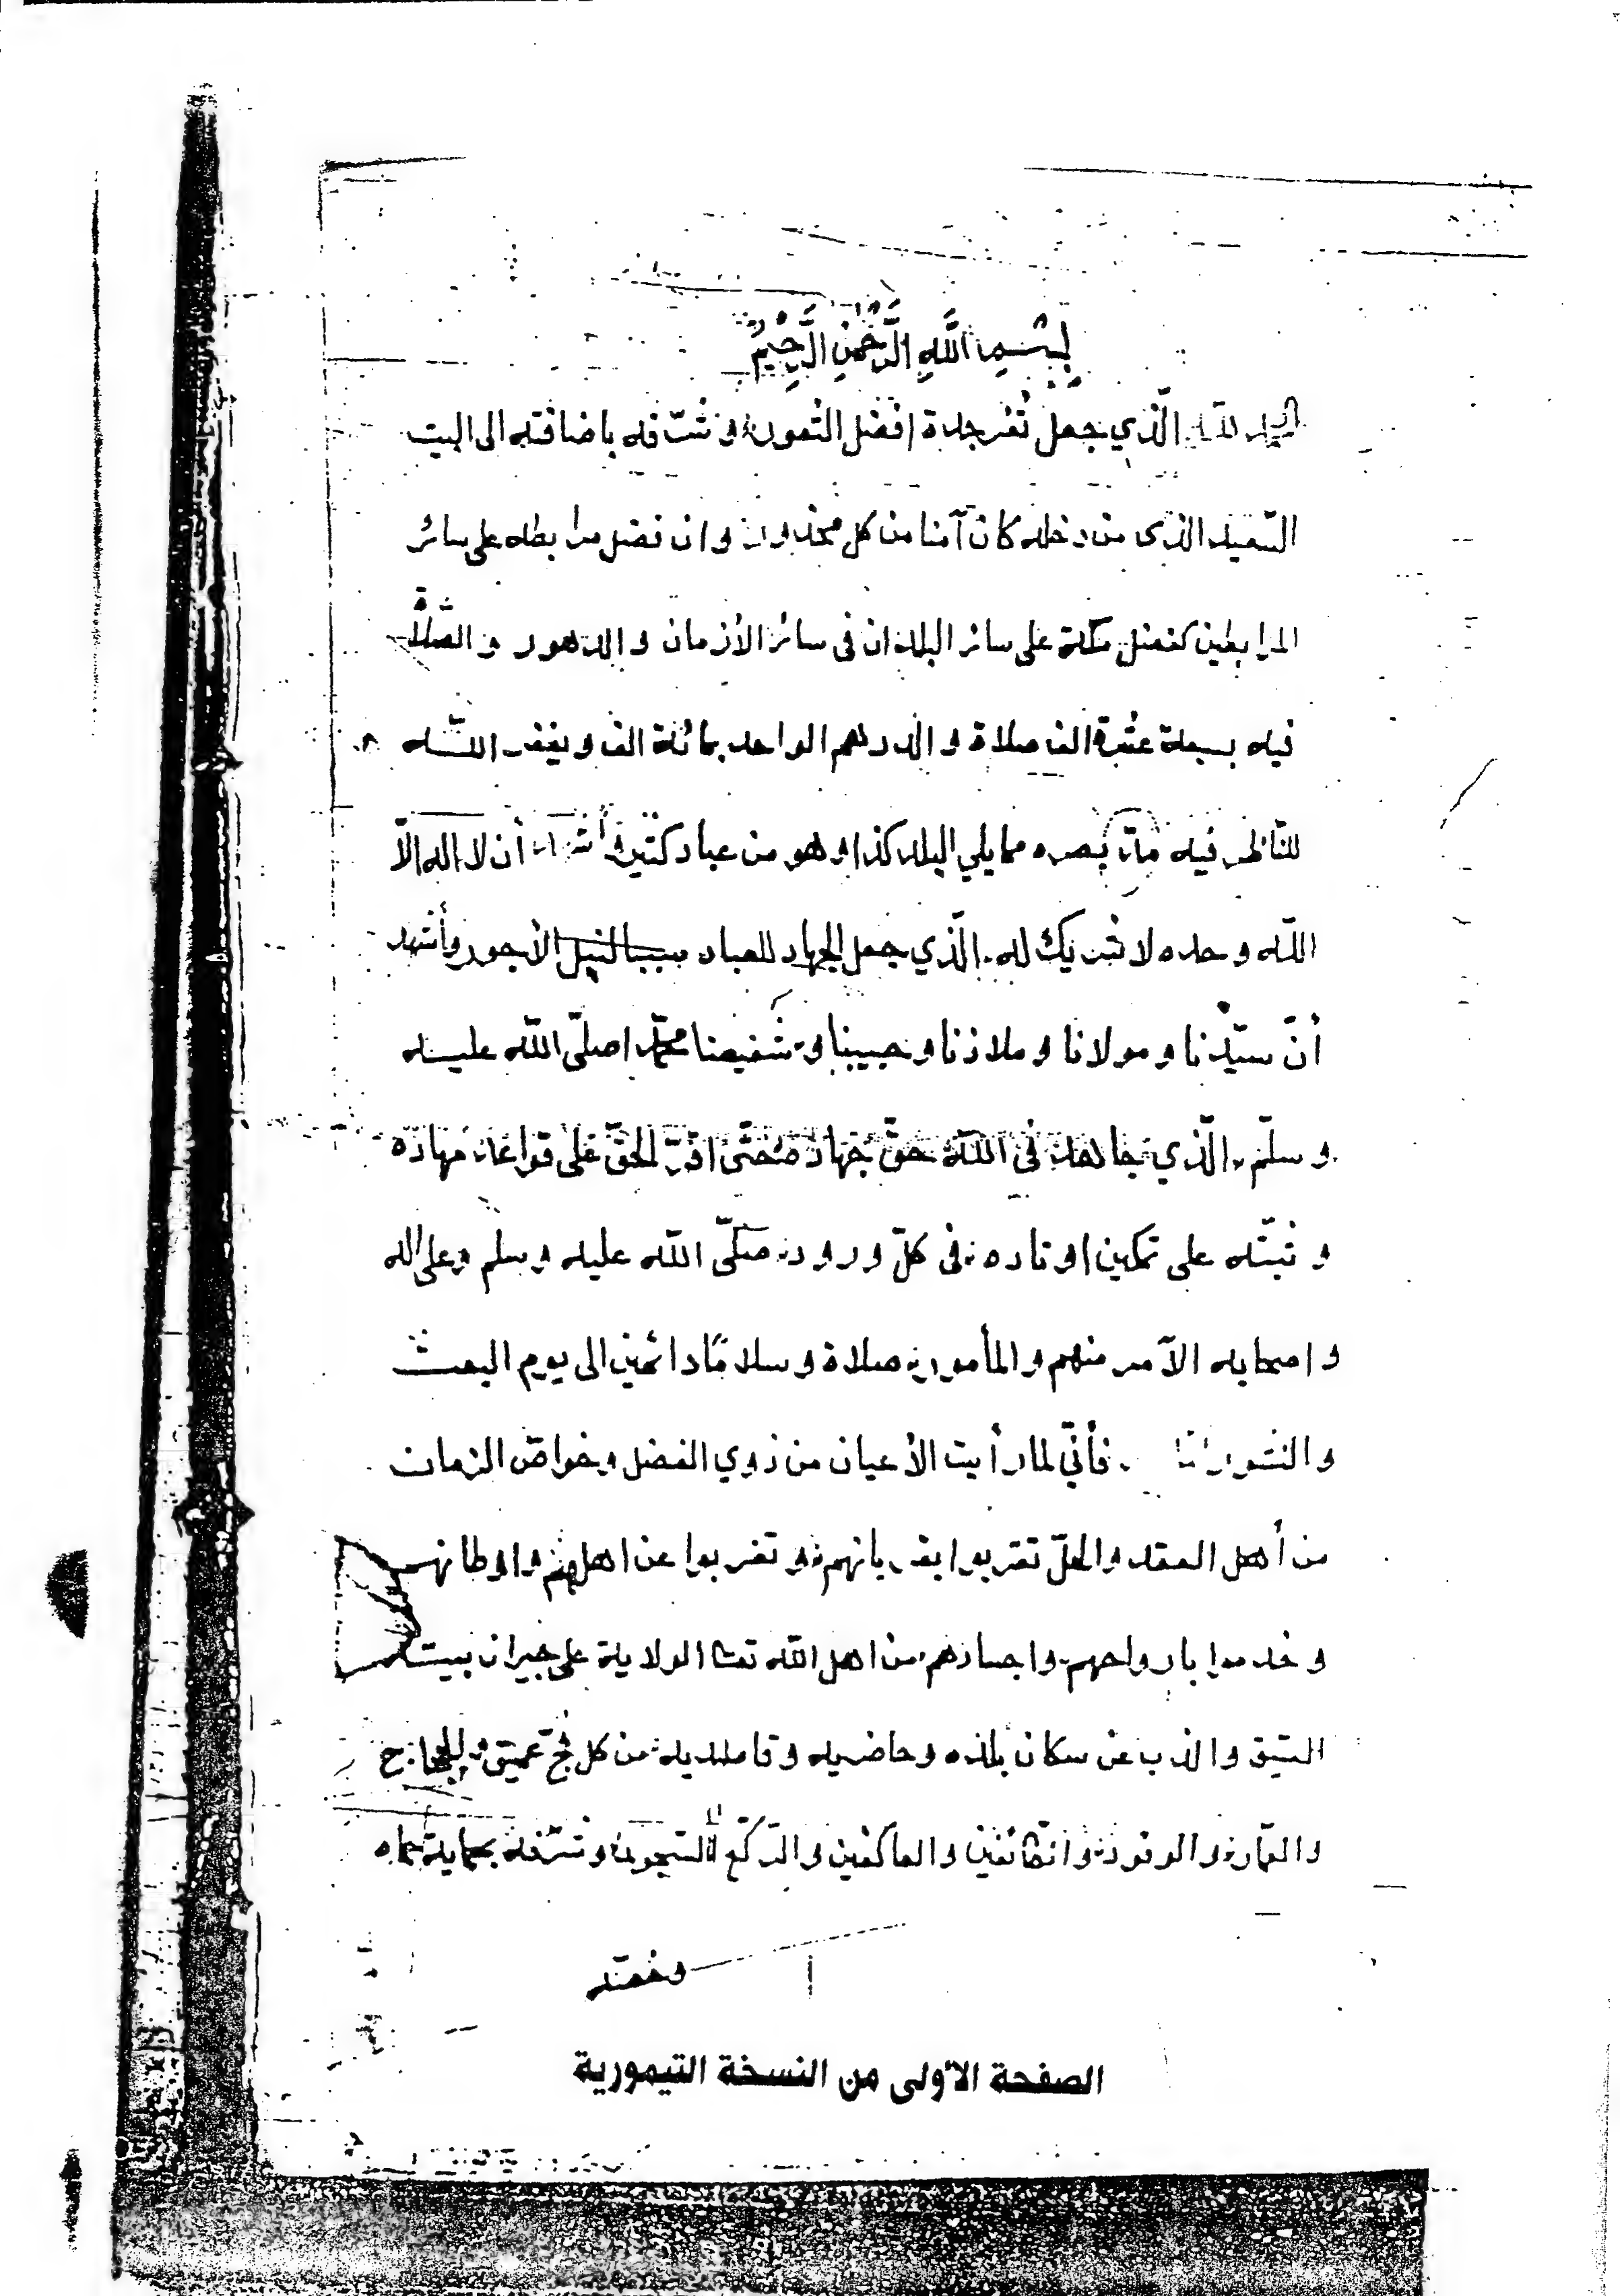 بِسْمِ اللَّهِ الرَّحْمٰنِ الرَّحِيْمِ
الحمد للّه الّذي جعل ثغر جدة افضل الثغور و شرّفه باضافته الى البيت
السعيد الذى من دخله كان آمنا من كل محذور و ان فضل مرابطه على سائر
المرابطين كفضل مكة على سائر البلدان فى سائر الأزمان و الدهور و الصلاة
فيه بسبعة عشرة الف صلاة و الدرهم الواحد بمائة الف و يغفر اللّه
للنّاظر فيه مدّ بصره مما يلي البلد كذا و هو من عباد كثير و أشهد أن لا اله الّا
اللّه وحده لا شريك له الّذي جعل الجهاد للعباد سببا لنيل الأجور وأشهد
أنّ سيّدنا و مولانا و ملاذنا و حبيبنا و شفيعنا محمّدا صلّى اللّه عليه
و سلّم الّذي جاهد فى اللّه حقّ جهاده حتّى اقرّ الحقّ على قواعد مهاده
و ثبّته على تمكين اوتاده فى كلّ ورود صلّى اللّه عليه و سلم وعلى اله
و اصحابه الآمر منهم و المأمور صلاة و سلامًا دائمين الى يوم البعث
و النشور امّا فأنّي لما رأيت الأعيان من ذوي الفضل و خواصّ الزمان
من أهل العقد والحلّ تقربوا بقربانهم و تغربوا عن اهلهم و اوطانهم
و خدموا بارواحهم و اجسادهم من اهل اللّه تعا الولاية على جيران بيته
العتيق و الذب عن سكان بلده و حاضريه و قاصديه من كل فجّ عميق و الحجاج
و العمّار و الوفود و الطّائفين و العاكفين و الركّع السجود و شرّفه بحماية حماه
وخصّه
الصفحة الأولى من النسخة التيمورية